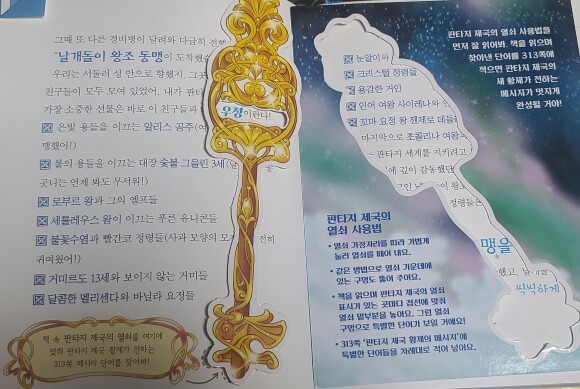 그때 또 다른 경비병이 달려와 다급히 전했
"날개돋이 왕조 동맹이 도착했습
우리는 서둘러 성 안으로 향했지. 그곳
친구들이 모두 모여 있었어. 내가 판타
가장 소중한 선물은 바로 이 친구들과
우정이란다!
은빛 용들을 이끄는 알리스 공주(여
맹했어!)
불의 용들을 이끄는 대장 숯불 그을린 3세(날
곳니는 언제 봐도 무서워!)
로부르 왕과 그의 엘프들
세몰레우스 왕이 이끄는 푸른 유니콘들
불꽃수염과 빨간코 정령들(사과 모양의 모자 전히
귀여웠어!)
거미르도 13세와 보이지 않는 거미들
달콤한 멜리센다와 바닐라 요정들
책 속 판타지 제국의 열쇠를 여기에
맞춰 판타지 제국 황제가 전하는
313쪽 메시지 단어를 찾아봐!
눈알이
크리스털 정령들
용감한 거인
인어 여왕 사이레나와
꼬마 요정 왕 팬제로 데들
마지막으로 초콜리나 여왕
판타지 세계를 지키려고
에 깊이 감동했단
정령들은
맹을
했고,
씩씩하게
판타지 제국의 열쇠 사용법을
먼저 잘 읽어봐. 책을 읽으며
찾아낸 단어를 313쪽에
적으면 판타지 제국의
새 황제가 전하는
메시지가 멋지게
완성될 거야!
판타지 제국의
열쇠 사용법
• 열쇠 가장자리를 따라 가볍게
눌러 열쇠를 떼어 내요.
• 같은 방법으로 열쇠 가운데에
있는 구멍도 뚫어 주어요.
• 책을 읽으며 판타지 제국의 열쇠
표시가 있는 곳마다 점선에 맞춰
열쇠 밑부분을 놓아요. 그럼 열쇠
구멍으로 특별한 단어가 보일 거예요!
• 313쪽 '판타지 제국 황제의 메시지'에
특별한 단어들을 차례대로 적어 넣어요.